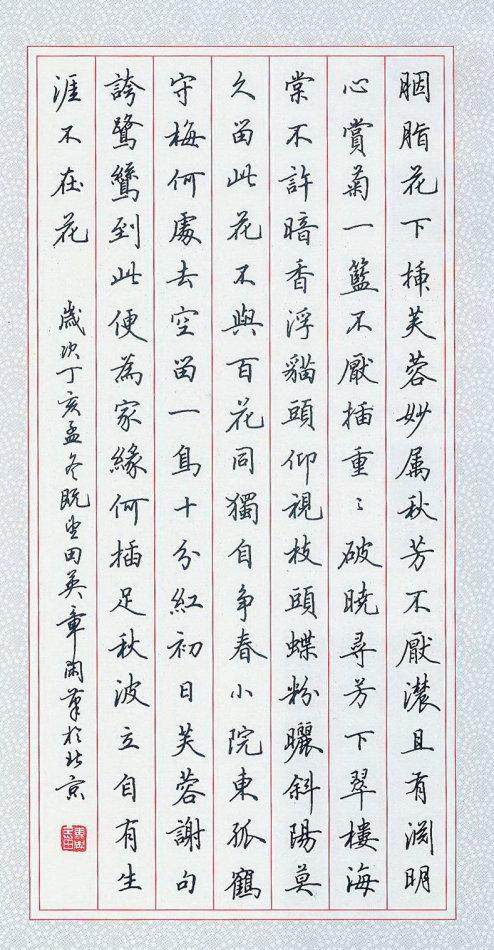 胭脂花下插芙蓉妙属秋芳不厭濃且有渊明
心賞菊一籃不厭插重〻破曉尋芳下翠樓海
棠不許暗香浮貓頭仰視枝頭蝶粉曬斜陽莫
久留此花不與百花同獨自爭春小院東孤鶴
守梅何處去空留一鳥十分紅初日芙蓉謝句
誇鷺鷥到此便為家緣何插足秋波立自有生
涯不在花
歲次丁亥孟冬既望田英章閑筆於北京